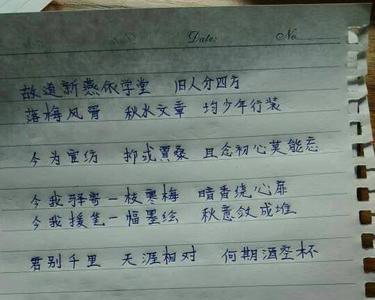 Date: No.
故道新燕依学堂 旧人分四方
落梅风骨 秋水文章 均少年行装
今为宣纺 抑或贾桑 且念初心莫能忘
今我寻一枝寒梅 暗香绕心扉
今我援笔一幅墨绘 秋意敛成堆
君别千里 天涯相对 何期酒空杯